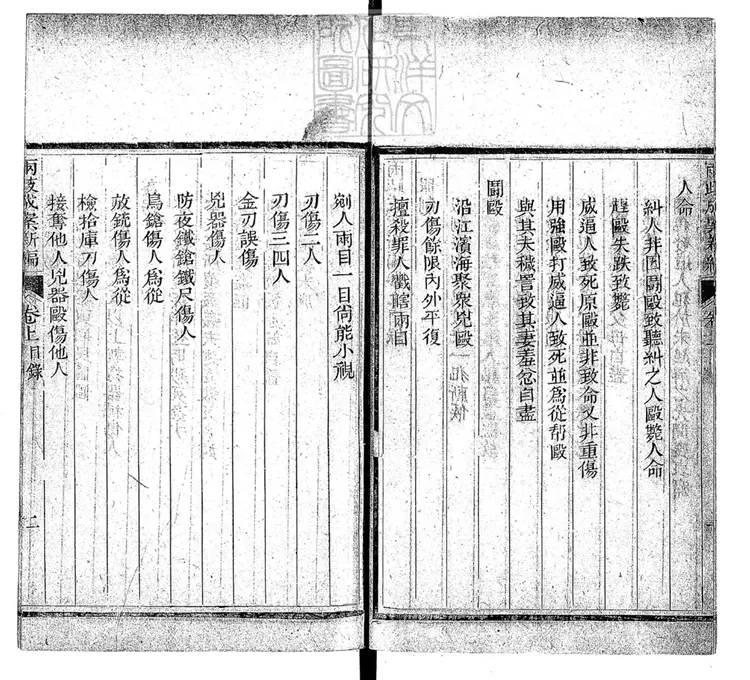 人命
糾人非因鬭毆致聽糾之人毆斃人命
趕毆失跌致斃
威逼人致死原毆並非致命又非重傷
用強毆打威逼人致死並為從幫毆
與其夫穢詈致其妻羞忿自盡
鬭毆
沿江濱海聚衆兇毆
刃傷餘限內外平復
擅殺罪人戳瞎兩目
剜人兩目一目尙能小視
刃傷二人
刃傷三四人
金刃誤傷
兇器傷人
防夜鐵鎗鐵尺傷人
鳥鎗傷人為從
放銃傷人為從
檢拾庫刀傷人
接奪他人兇器毆傷他人
兩歧成案新編
卷上目錄
二